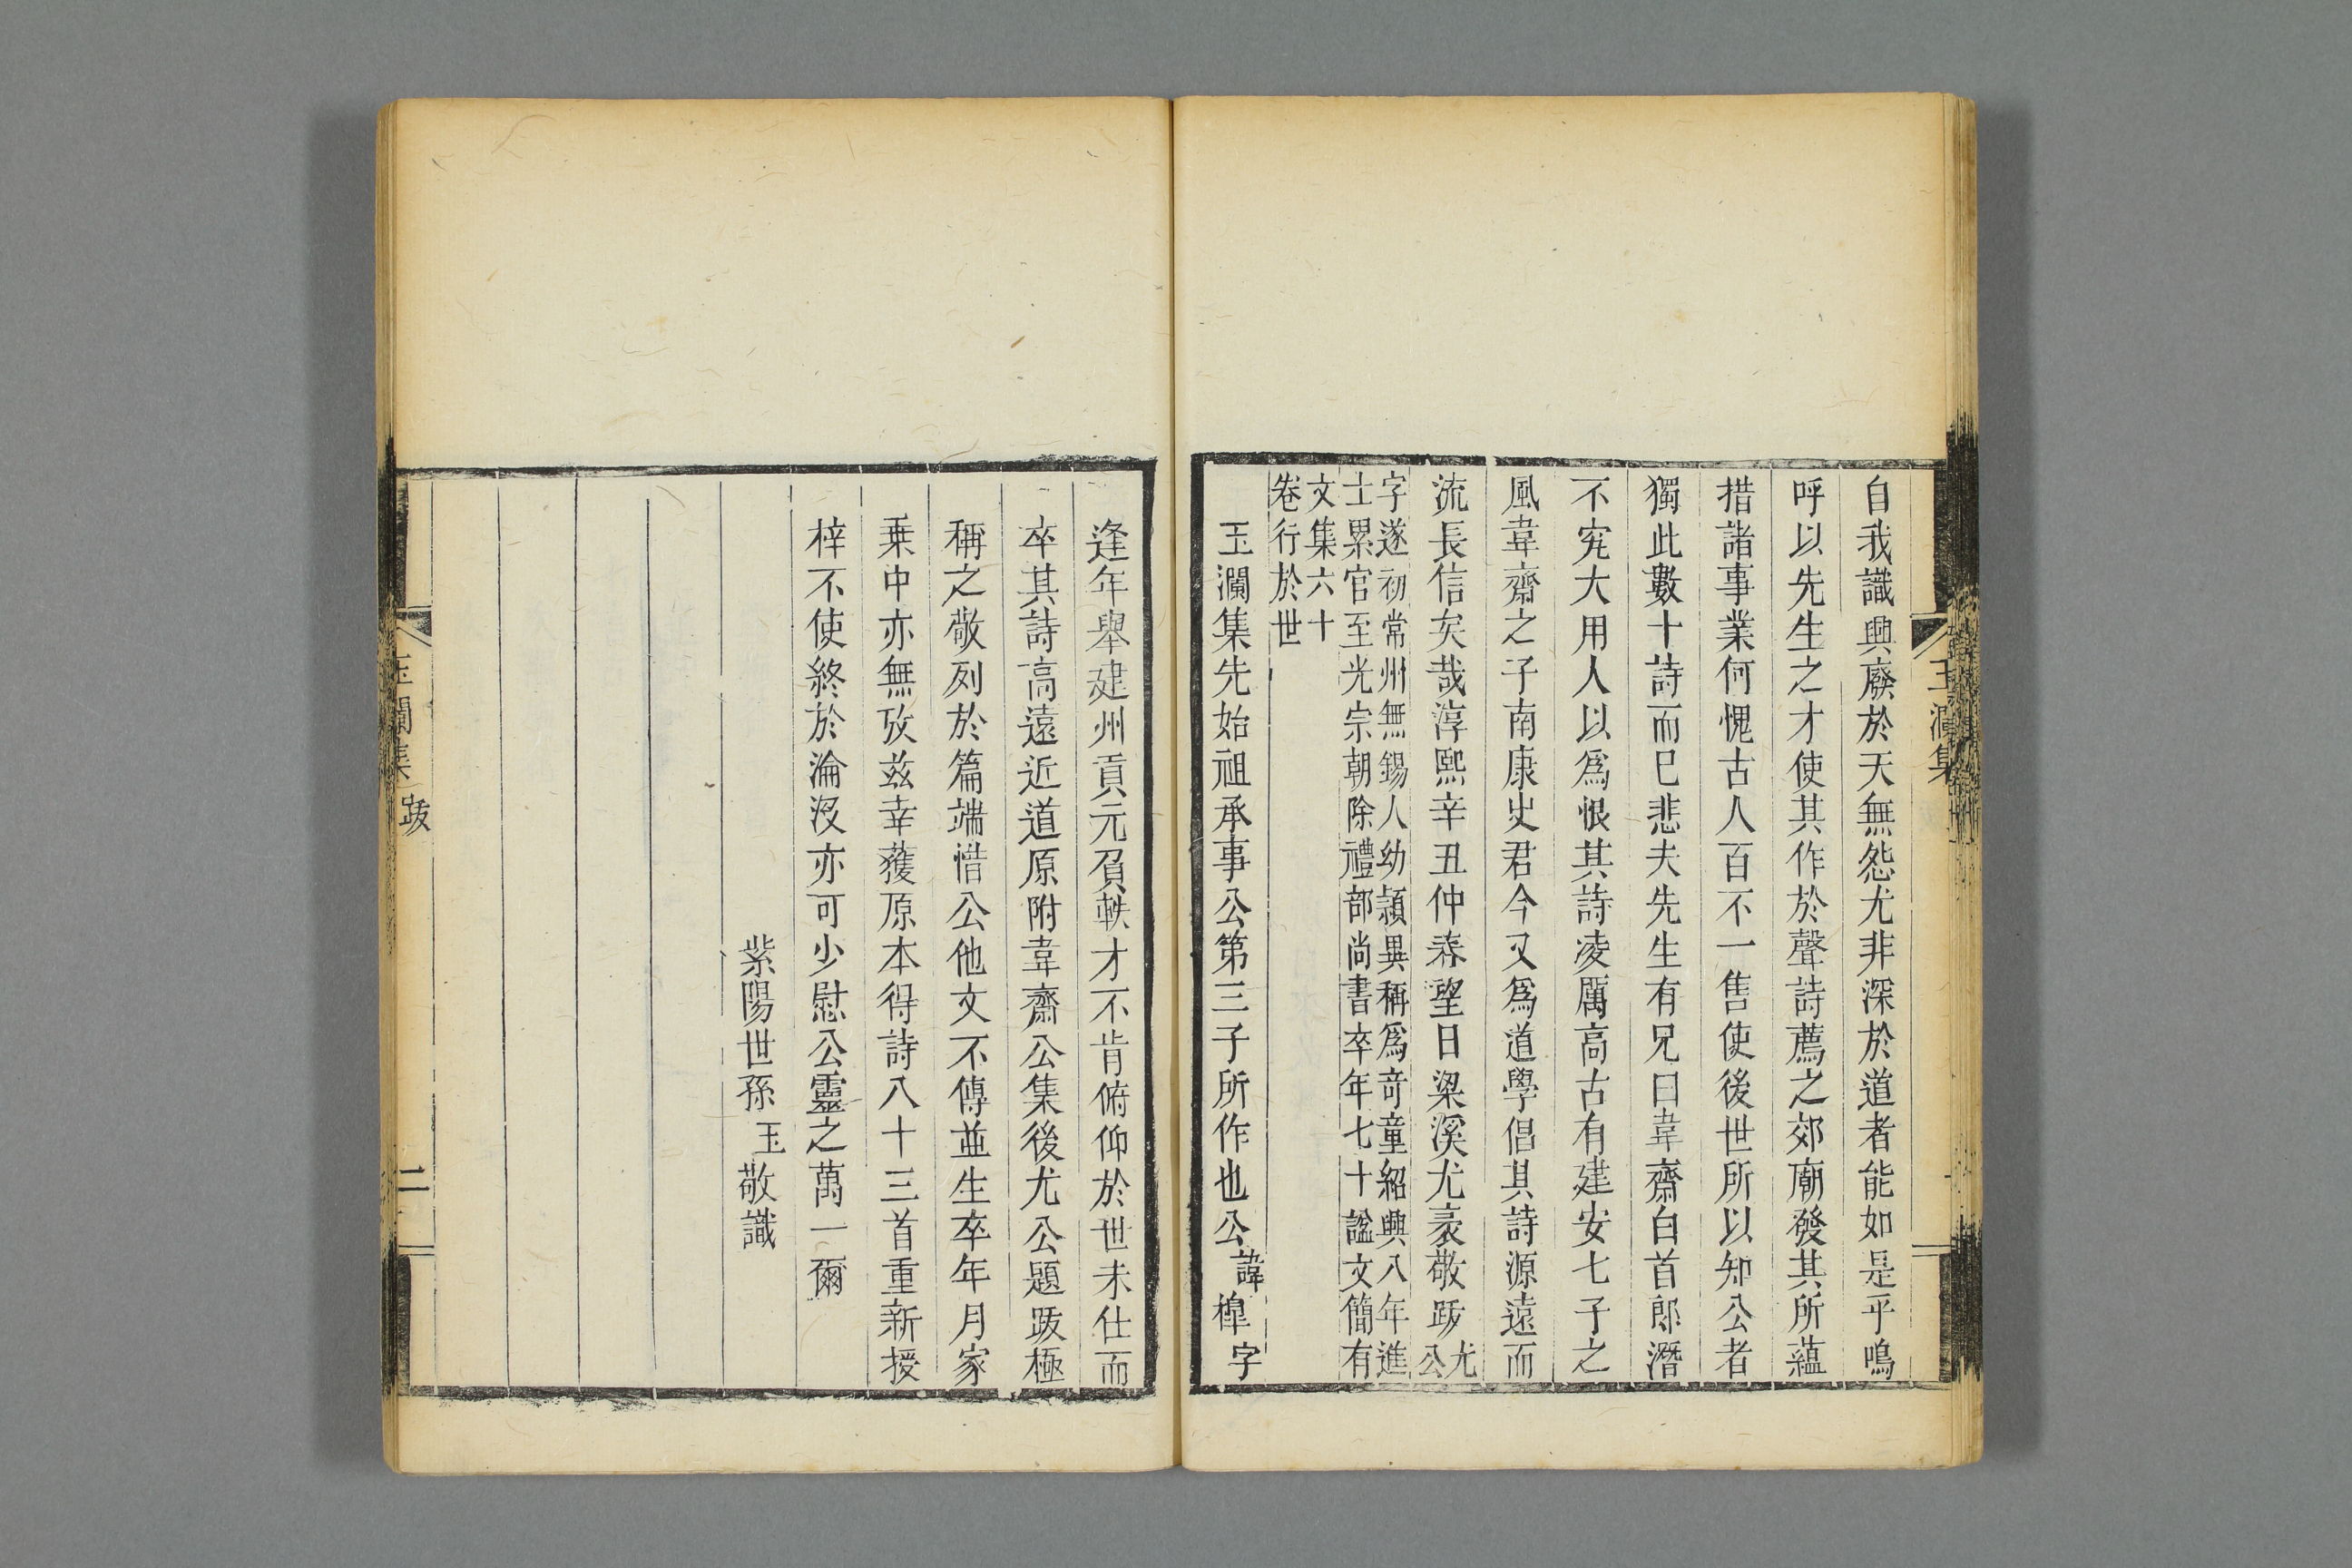 自我識興廢於天無怨尤非深於道者能如是乎鳴
呼以先生之才使其作於聲詩薦之郊廟發其所蘊
措諸事業何愧古人百不一售使後世所以知公者
獨此數十詩而巳悲夫先生有兄曰韋齋白首郎潛
不究大用人以爲恨其詩凌厲高古有建安七子之
風韋齋之子南康史君今又爲道學倡其詩源遠而
流長信矣哉淳熙辛丑仲春望日梁溪尤袤敬䟦尤公
字遂初常州無錫人幼頴異稱爲奇童紹興八年進
士累官至光宗朝除禮部尚書卒年七十諡文簡有
文集六十
卷行於世
玉瀾集先始祖承事公第三子所作也公諱槹字
逢年舉建州貢元負軼才不肯俯仰於世未仕而
卒其詩高遠近道原附韋齋公集後尤公題䟦極
稱之敬列於篇端惜公他文不傳並生卒年月家
乗中亦無攷兹幸獲原本得詩八十三首重新授
梓不使終於淪没亦可少慰公靈之萬一爾
紫陽世孫玉敬識
玉瀾集
玉瀾集 䟦 二